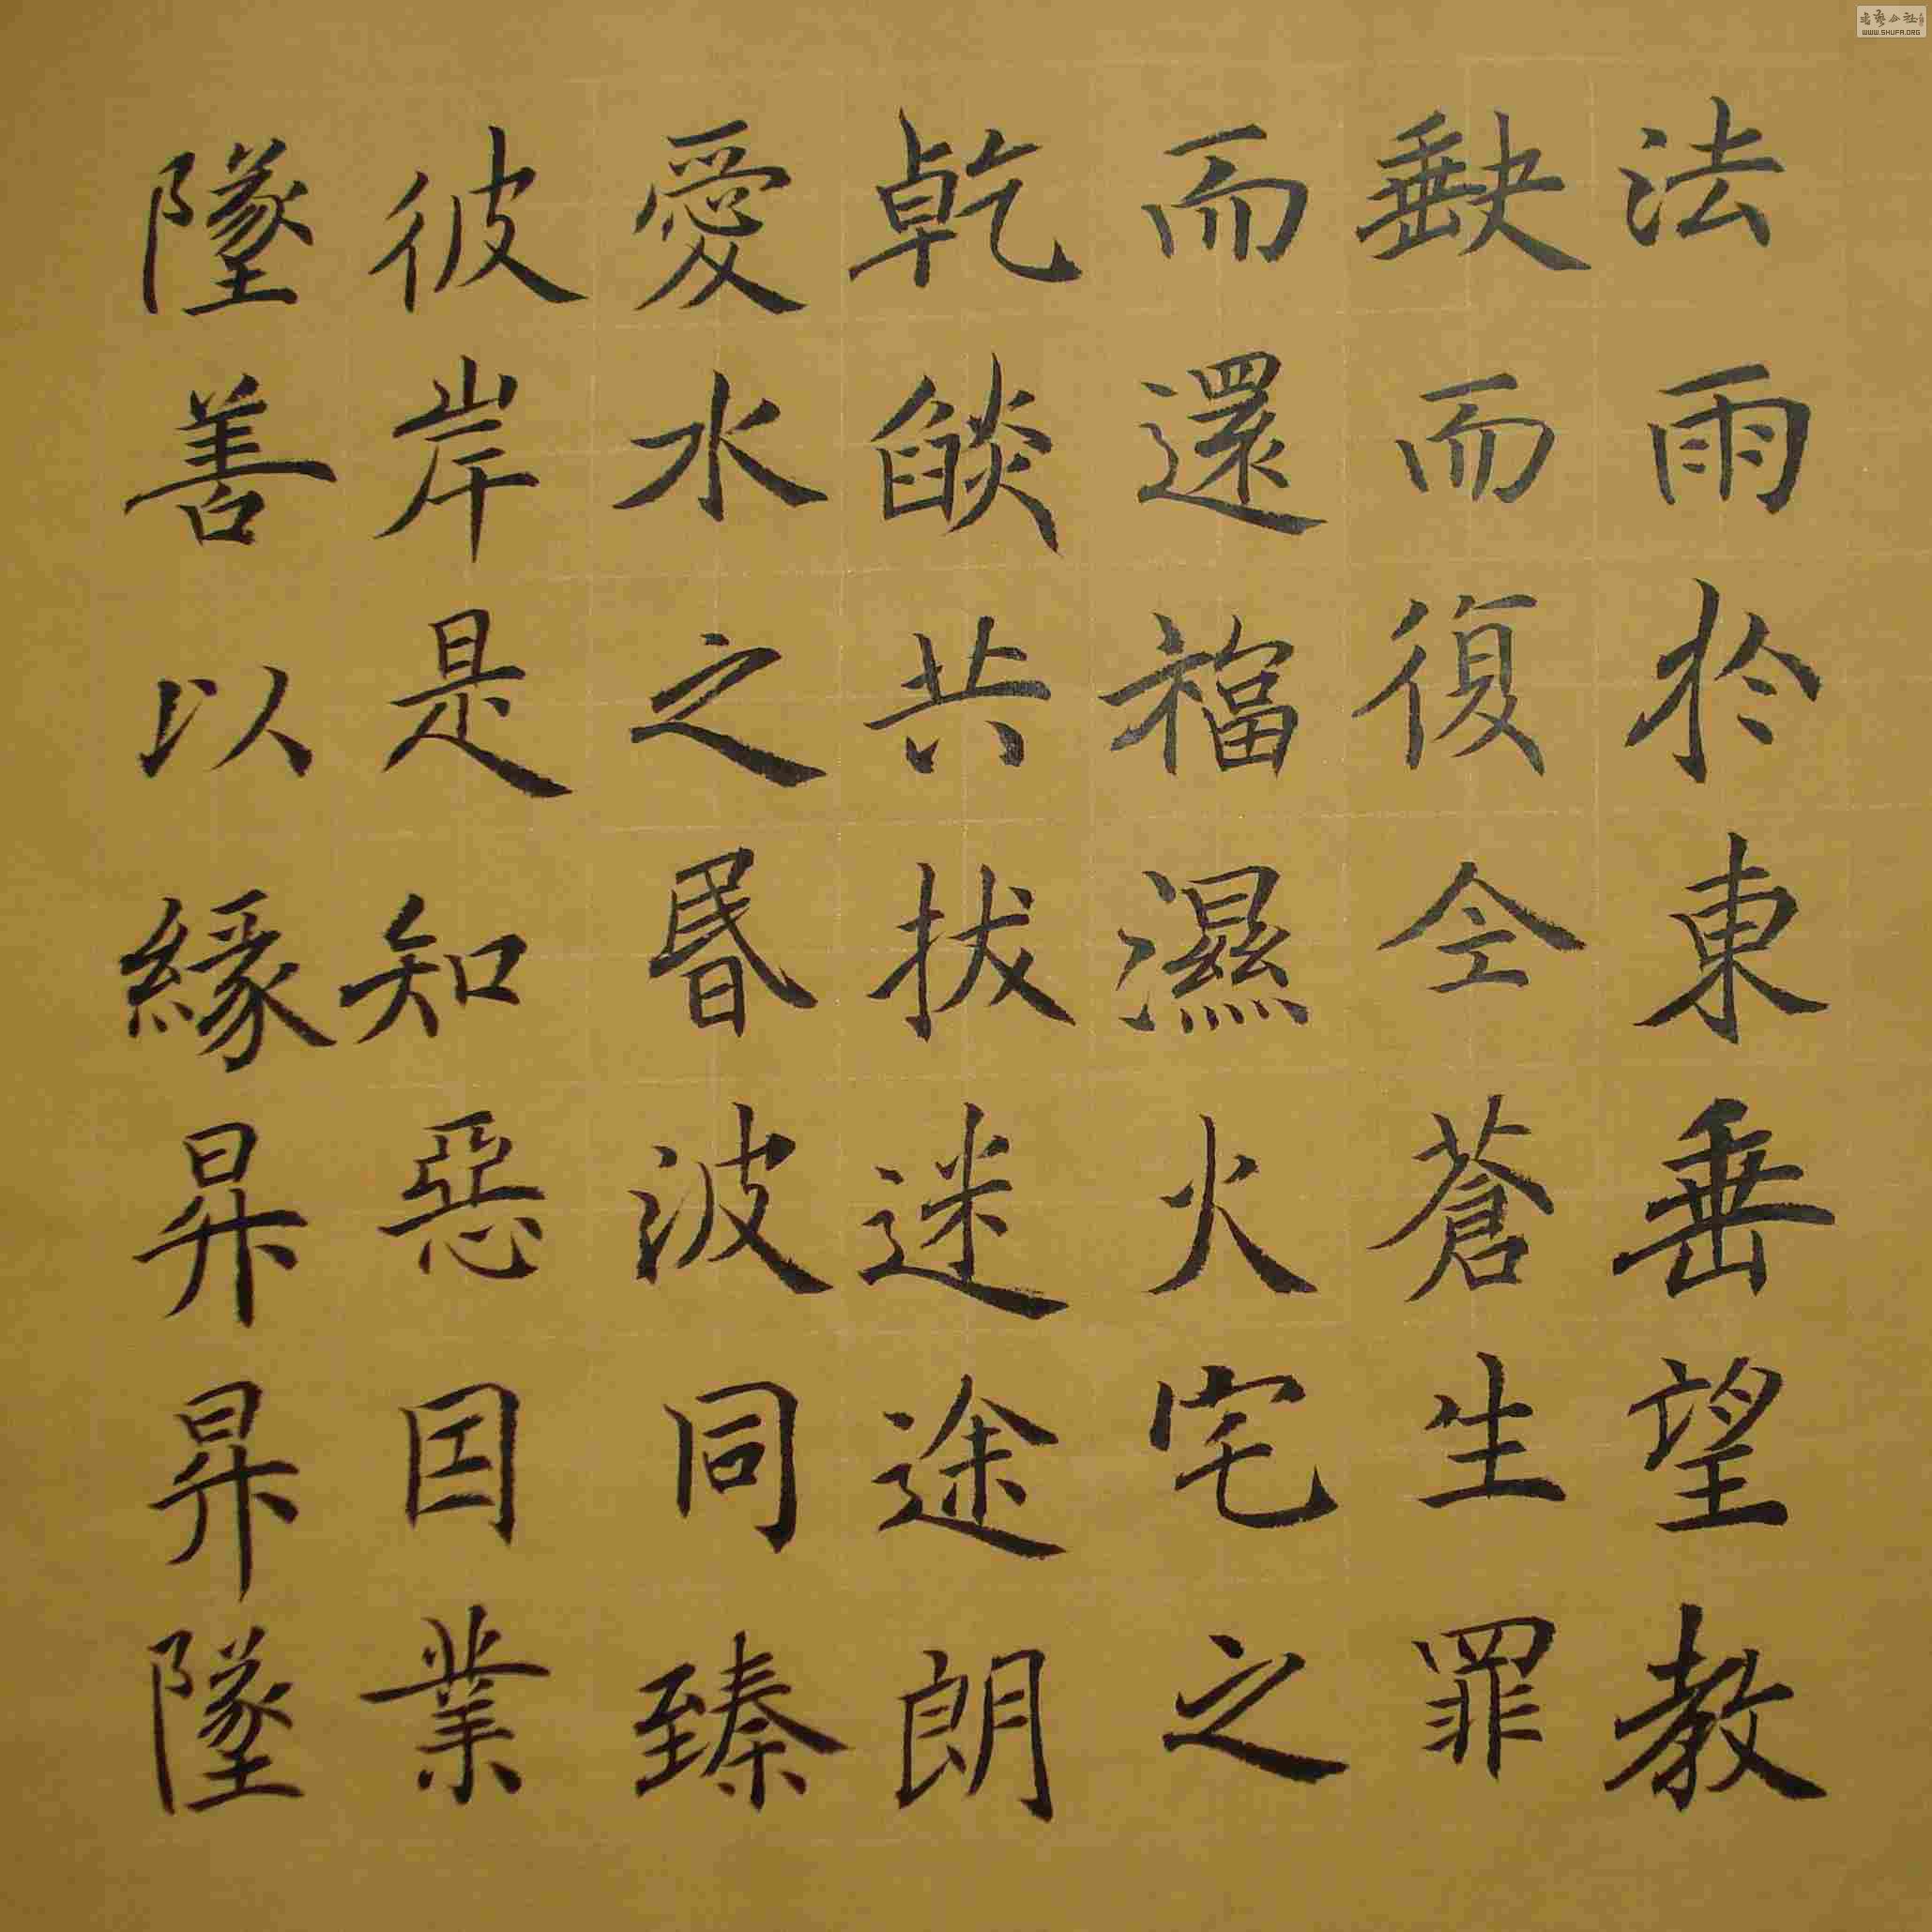 法雨於東垂望教
缺而復全蒼生罪
而還福濕火宅之
乾燄共拔迷途朗
愛水之昬波同臻
彼岸是知惡因業
墜善以緣昇昇墜
WWW.SHUFA.ORG